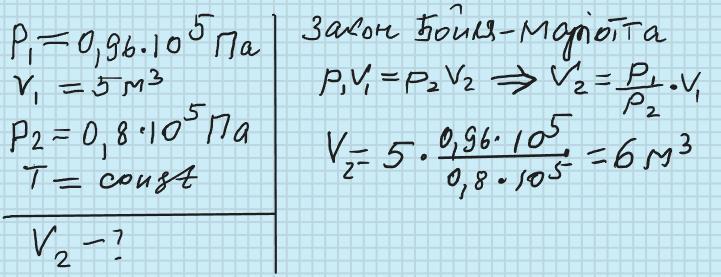 P₁ = 0,96·10⁵ Па
V₁ = 5 м³
P₂ = 0,8·10⁵ Па
T = const
V₂ – ?
Закон Бойля-Маріотта
P₁V₁ = P₂V₂ ⟹ V₂ = P₁/P₂ · V₁
V₂ = 5 · 0,96·10⁵/0,8·10⁵ = 6 м³